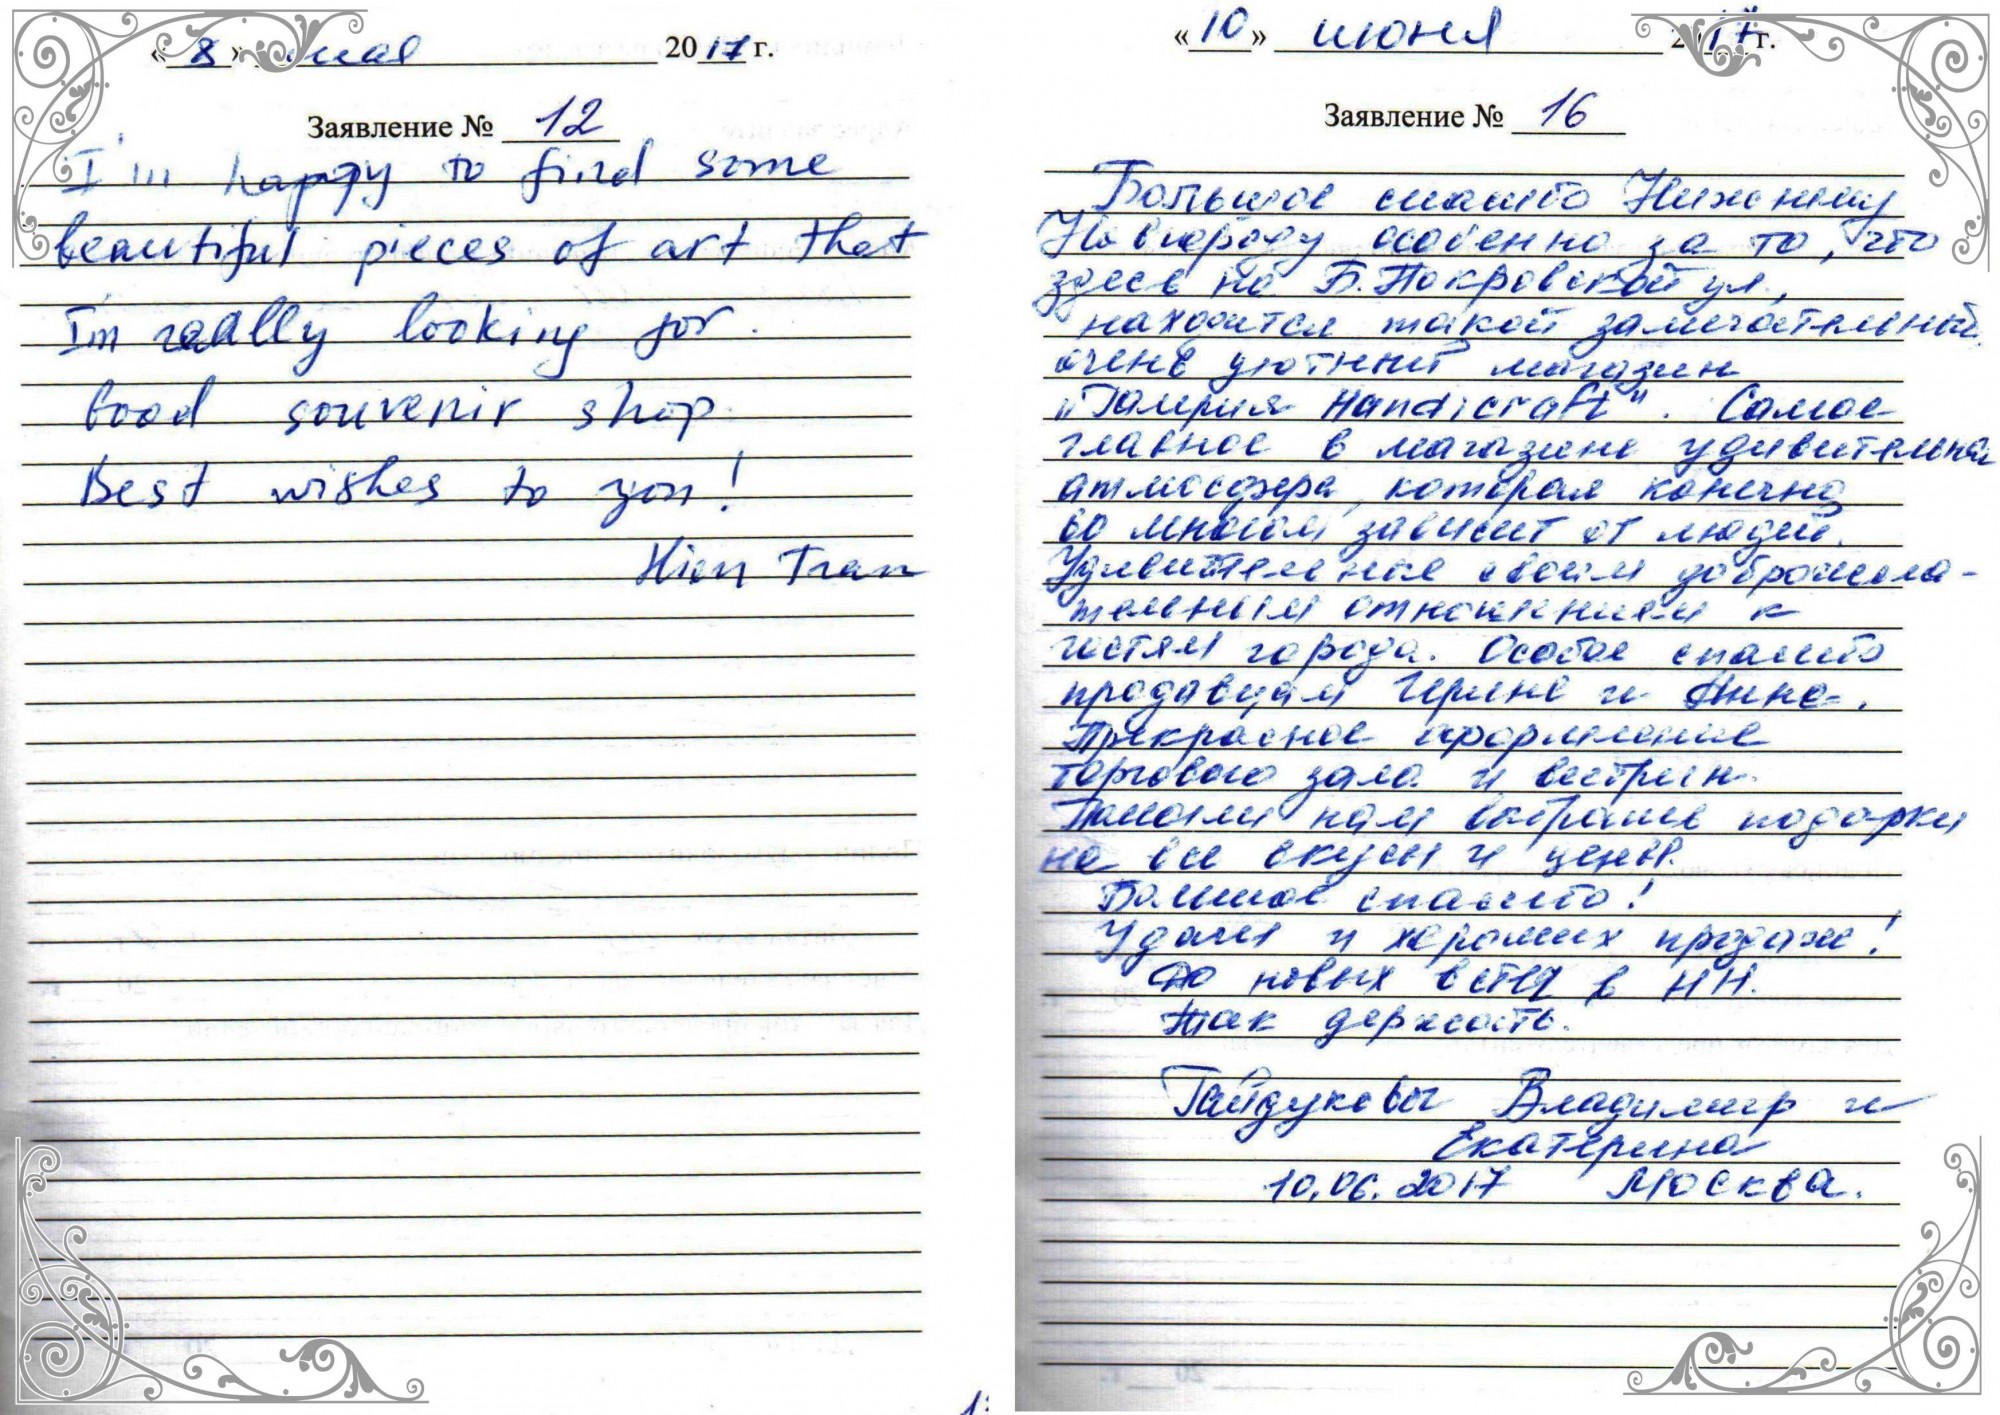 « 8 » мая 2017 г.
Заявление № 12
I'm happy to find some
beautiful pieces of art that
I'm really looking for.
Good souvenir shop.
Best wishes to you!
Hien Tran
« 10 » июня 2017 г.
Заявление № 16
Большое спасибо Нижнему
Новгороду особенно за то, что
здесь на Б. Покровской ул.,
находится такой замечательный,
очень уютный магазин
"Галерия Handicraft". Самое
главное в магазине удивительная
атмосфера, которая конечно
во многом зависит от людей.
Удивительное своим доброжела-
тельным отношением к
гостям города. Особое спасибо
продавцам Ирине и Инне.
Прекрасное оформление
торгового зала и витрин.
Помогли нам выбрать подарки
на все вкусы и цены.
Большое спасибо!
Удачи и хороших продаж!
До новых встреч в НН.
Так держать.
Гайдуковы Владимир и
Екатерина
10.06.2017 Москва.